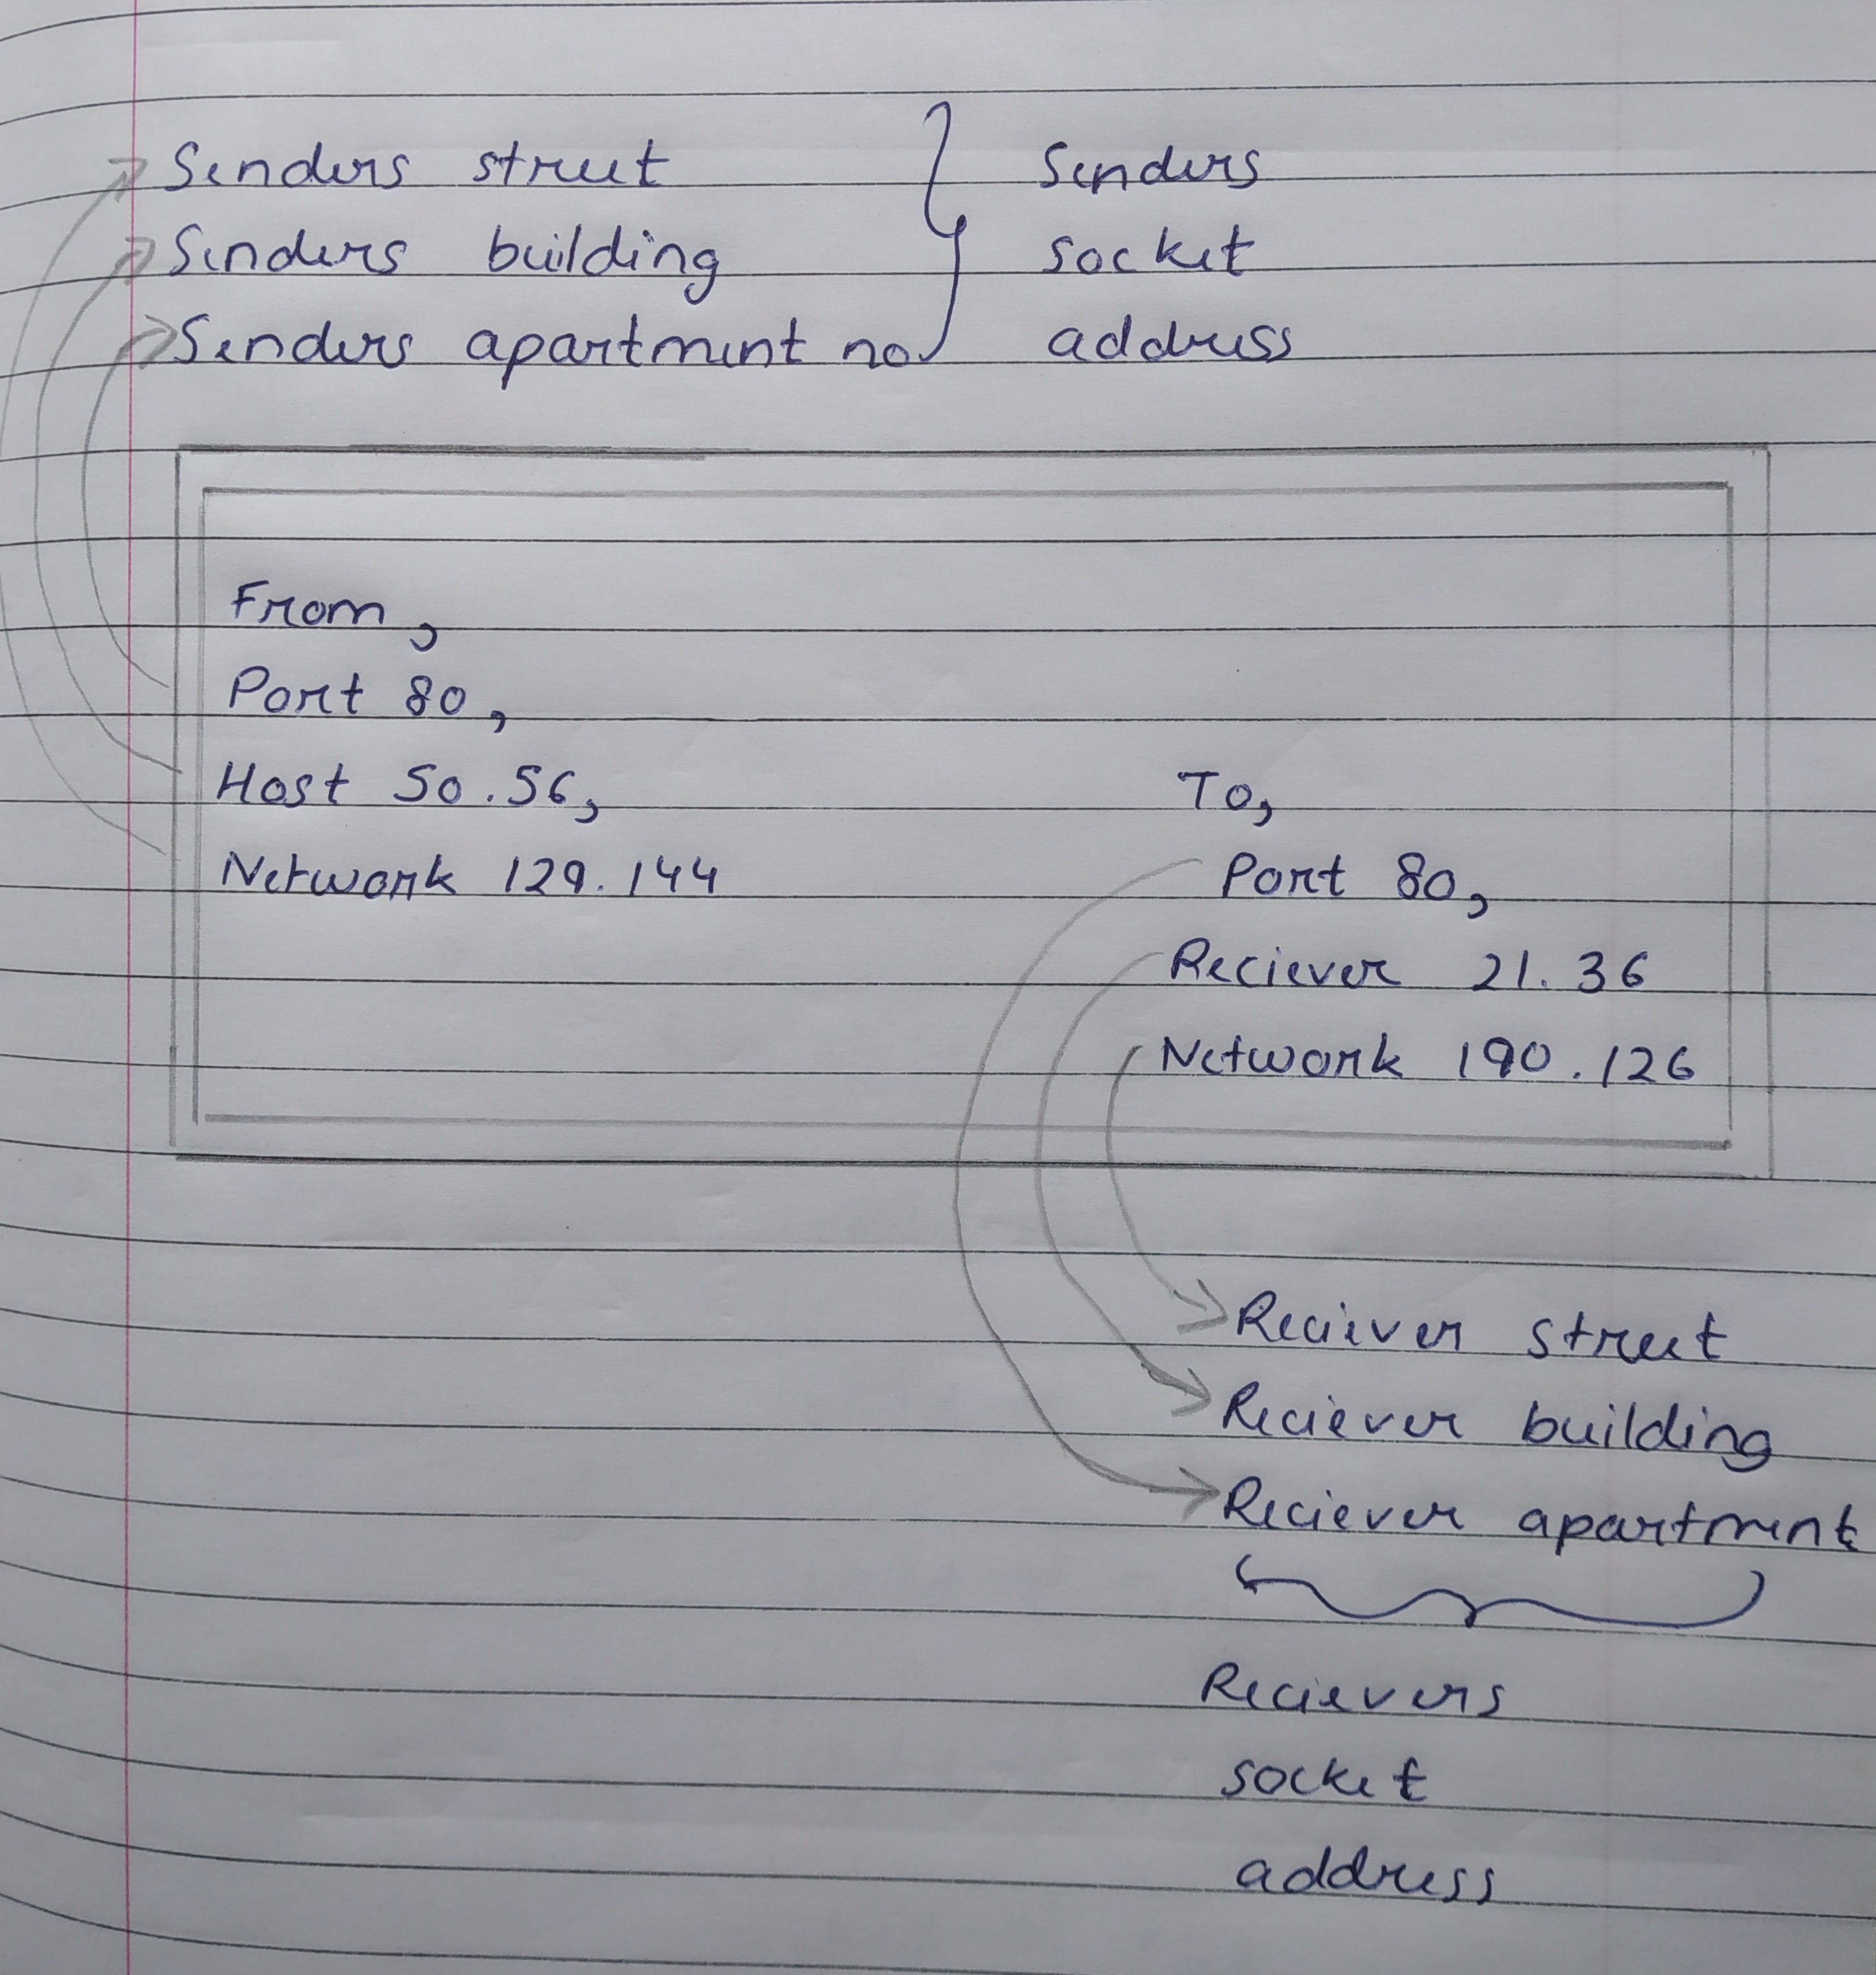 Senders street
Senders building
Senders apartment no
Senders
socket
address
From,
Port 80,
Host 50.56,
Network 129.144
To,
Port 80,
Reciever 21.36
Network 190.126
Reciever street
Reciever building
Reciever apartment
Recievers
socket
address